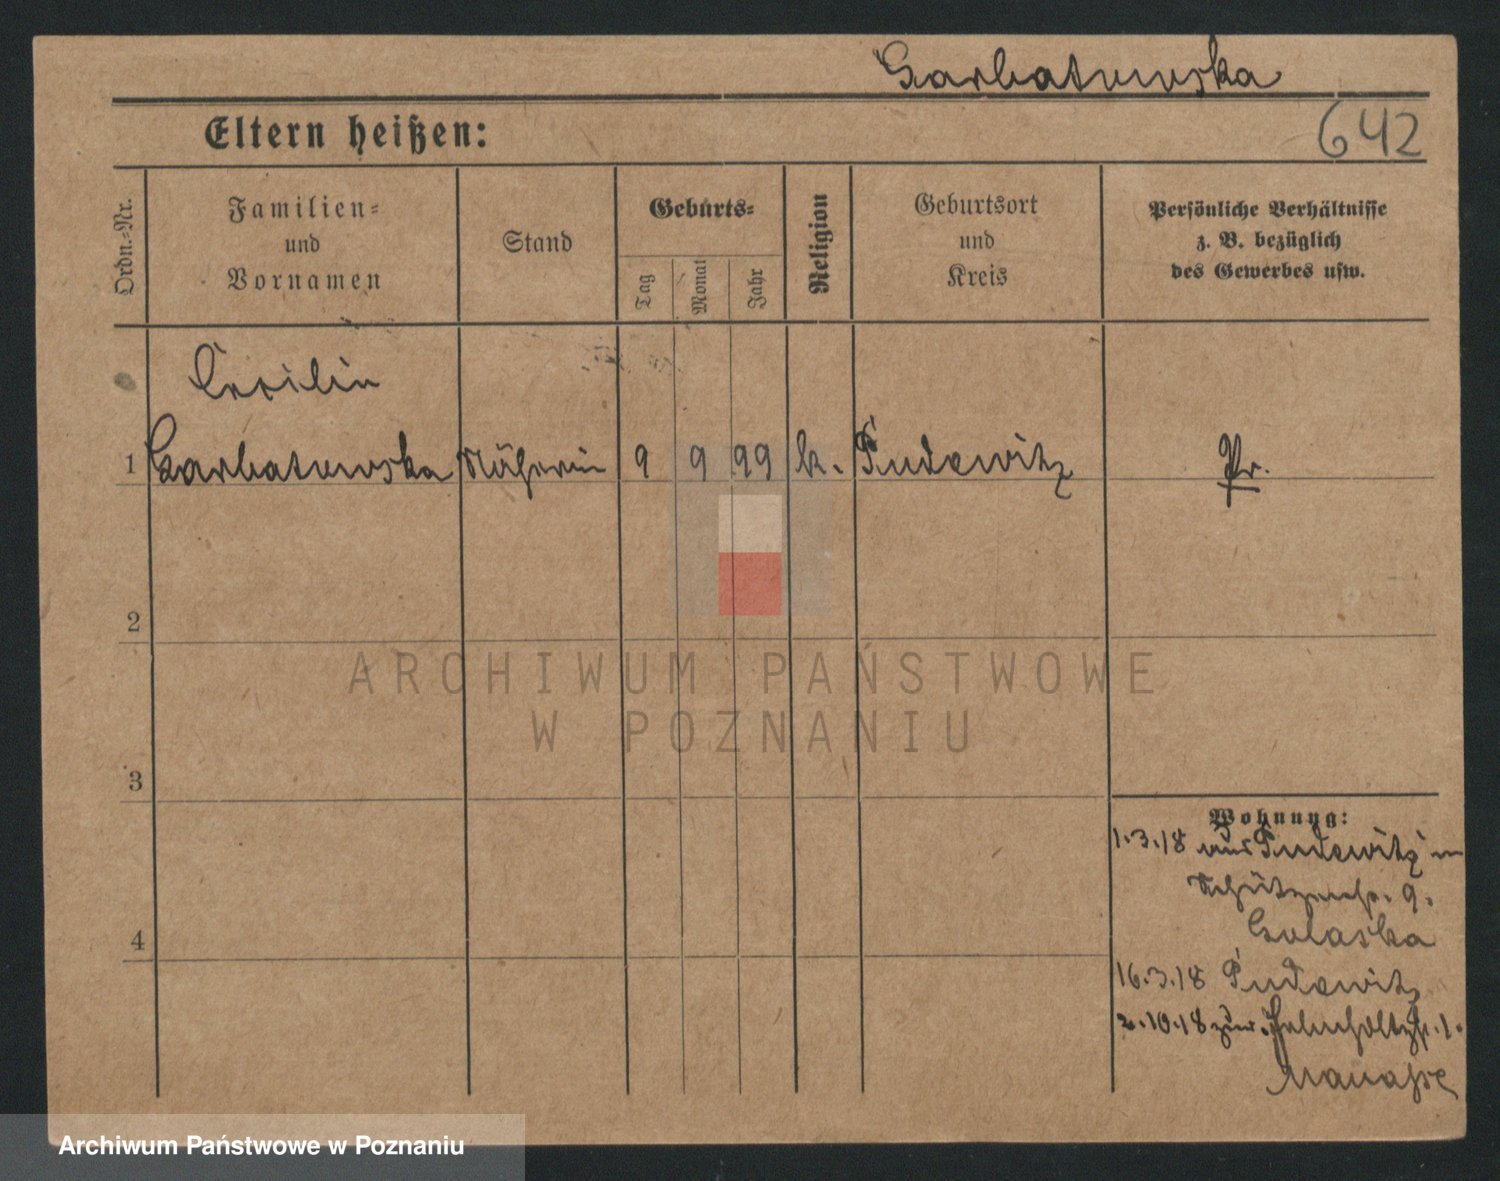 Garbatowska
Eltern heißen:
642
Ordn.-Nr.
Familien-
und
Vornamen
Stand
Geburts-
Tag
Monat
Jahr
Religion
Geburtsort
und
Kreis
Persönliche Verhältnisse
z. B. bezüglich
des Gewerbes usw.
Cecilie
1 Garbatowska Näherin 9 9 99 k. Pudewitz Pr.
2
3
4
Wohnung:
1.3.18 aus Pudewitz n
Schützenstr. 9.
Golaska
16.3.18 Pudewitz
2.10.18 zur. Helmholtzstr. 1.
Manasse
ARCHIWUM PAŃSTWOWE
W POZNANIU
Archiwum Państwowe w Poznaniu